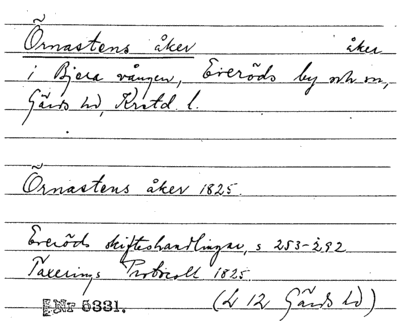 Örnastens åker åker
i Bjera vången, Everöds by och sn,
Gärds hd, Kristd. l.
Örnastens åker 1825.
Everöds skifteshandlingar, s 253-292
Taxerings Protocoll 1825.
Nr 5331. (L 12 Gärds hd)